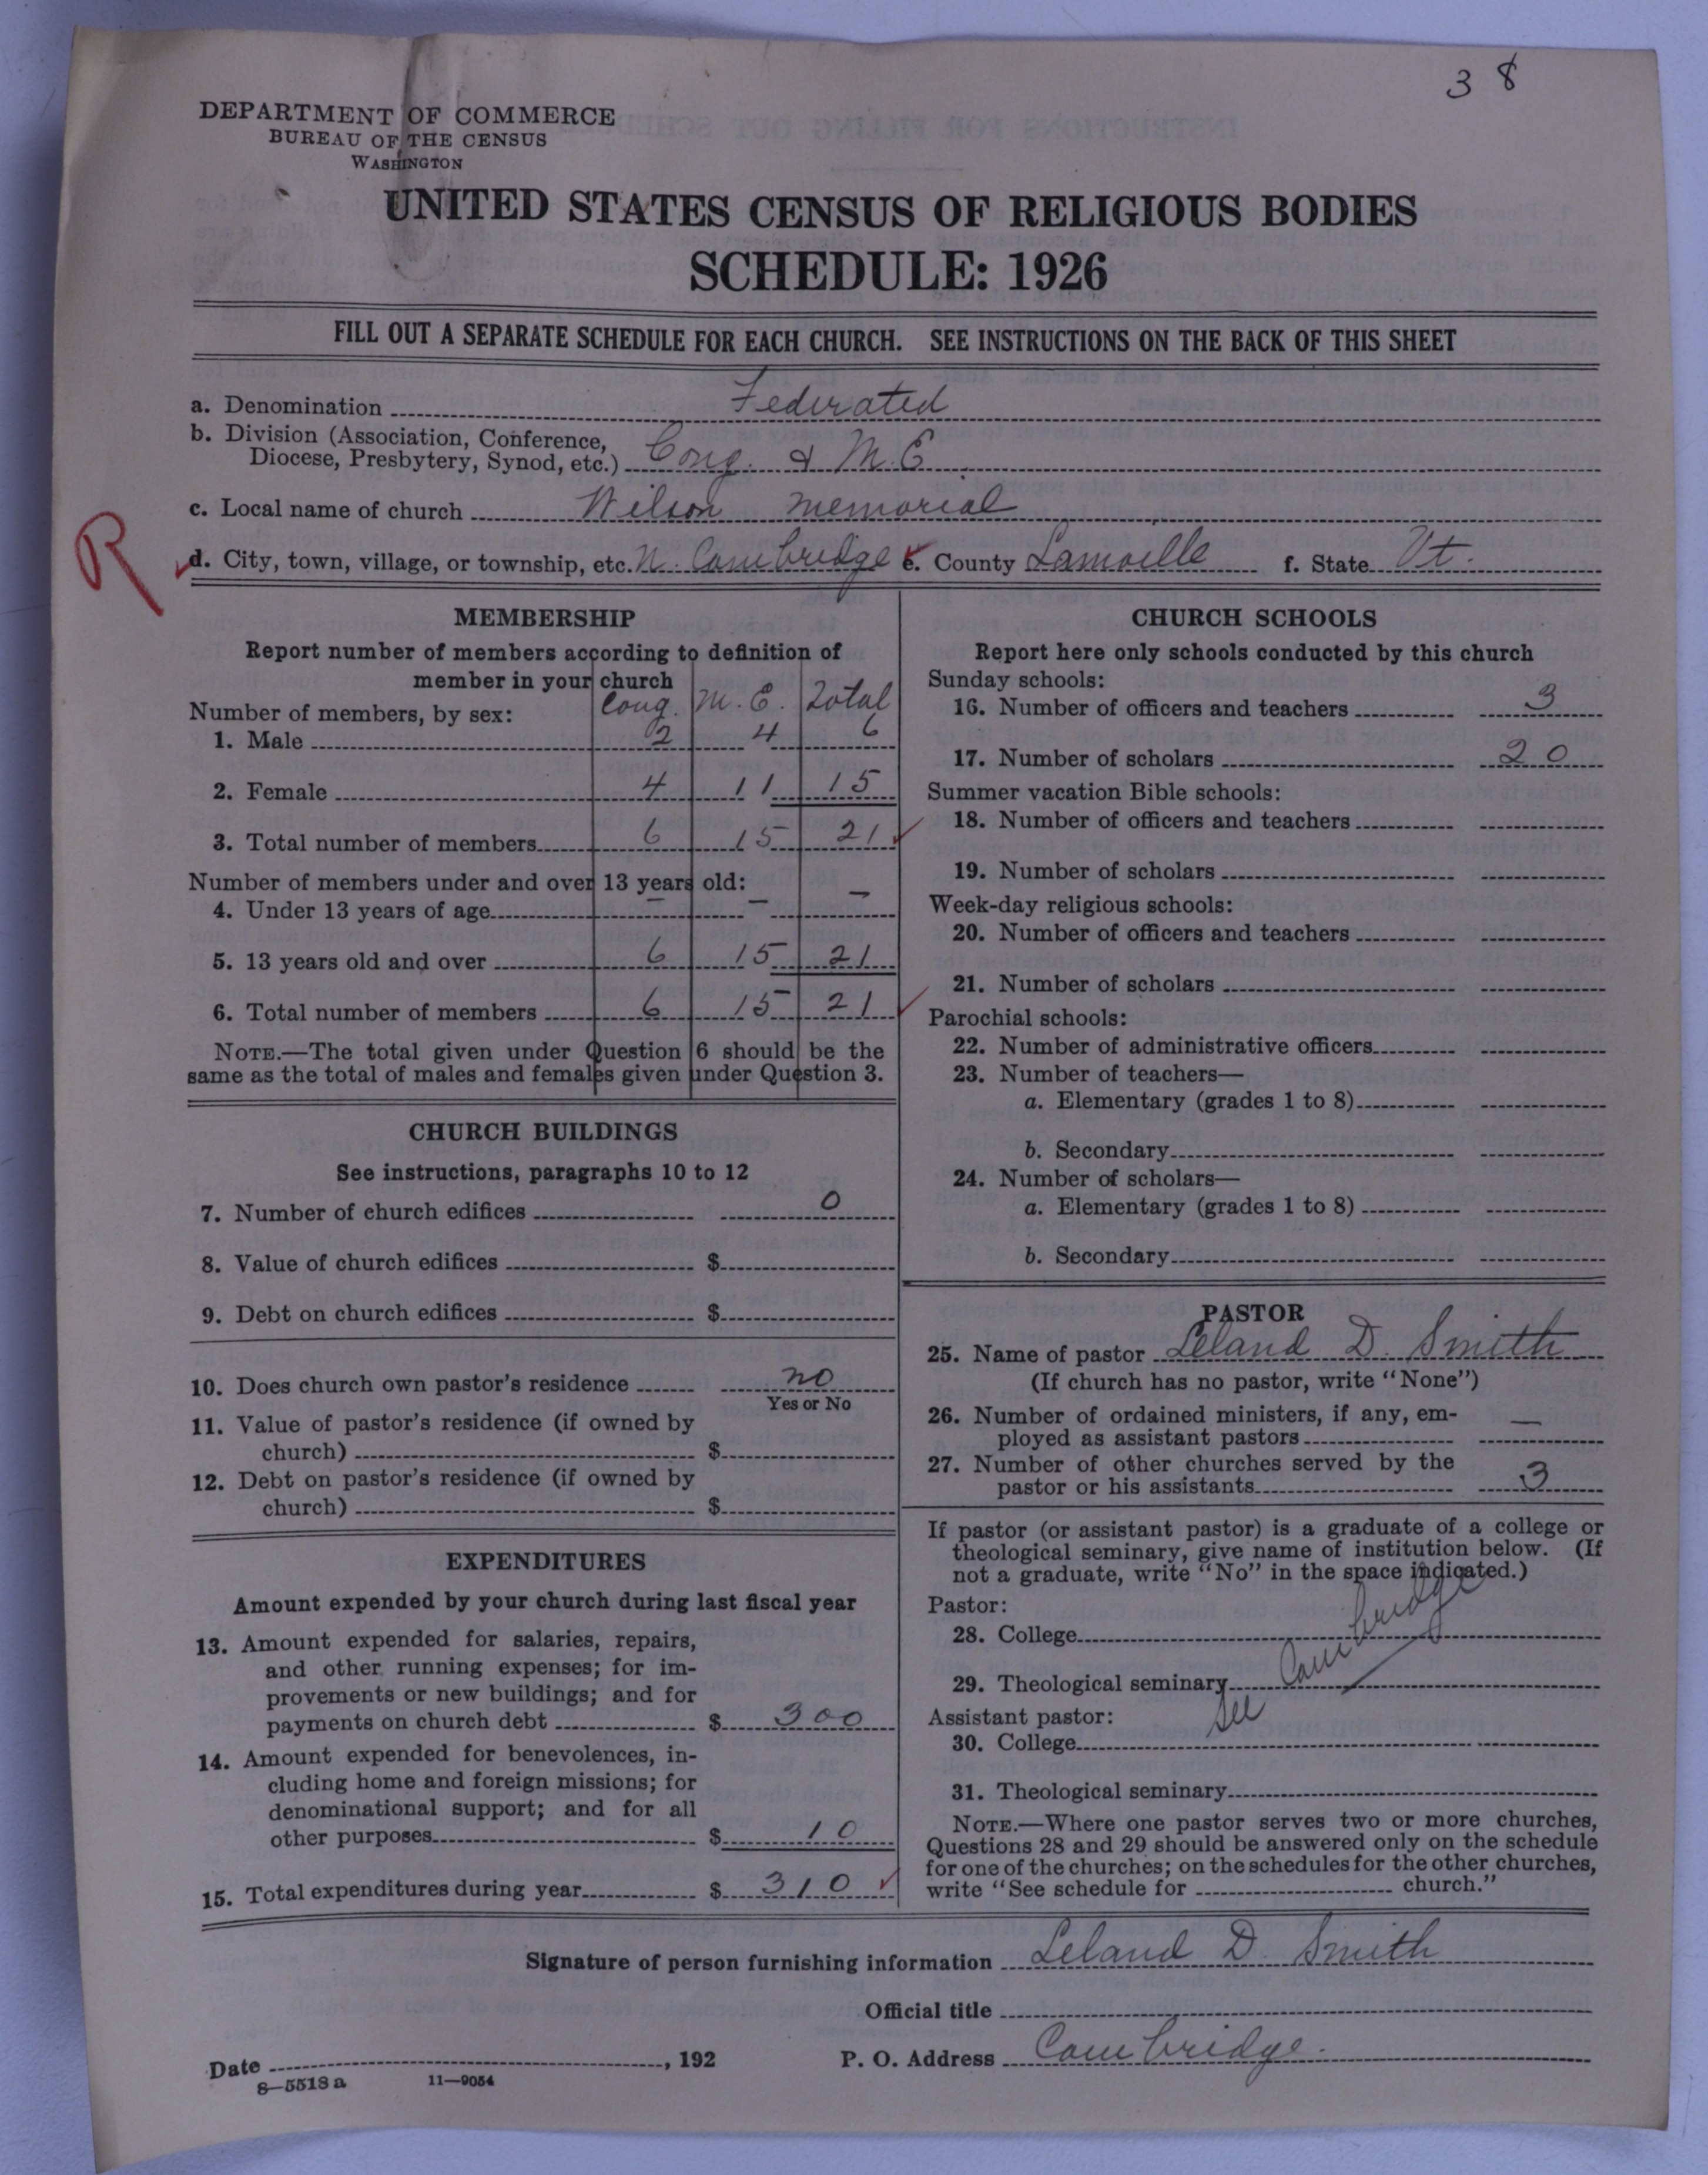 38
DEPARTMENT OF COMMERCE
BUREAU OF THE CENSUS
WASHINGTON
UNITED STATES CENSUS OF RELIGIOUS BODIES
SCHEDULE: 1926
FILL OUT A SEPARATE SCHEDULE FOR EACH CHURCH. SEE INSTRUCTIONS ON THE BACK OF THIS SHEET
a. Denomination Federated
b. Division (Association, Conference,
Diocese, Presbytery, Synod, etc.) Cong. & M.E.
c. Local name of church Wilson memorial
R
d. City, town, village, or township, etc. N. Cambridge e. County Lamoille f. State Vt.
MEMBERSHIP
Report number of members according to definition of
member in your church
Cong. M.E. Total
Number of members, by sex:
1. Male 2 4 6
2. Female 4 11 15
3. Total number of members 6 15 21
Number of members under and over 13 years old:
4. Under 13 years of age — — —
5. 13 years old and over 6 15 21
6. Total number of members 6 15 21
NOTE.—The total given under Question 6 should be the
same as the total of males and females given under Question 3.
CHURCH BUILDINGS
See instructions, paragraphs 10 to 12
7. Number of church edifices 0
8. Value of church edifices $
9. Debt on church edifices $
10. Does church own pastor's residence no
Yes or No
11. Value of pastor's residence (if owned by
church) $
12. Debt on pastor's residence (if owned by
church) $
EXPENDITURES
Amount expended by your church during last fiscal year
13. Amount expended for salaries, repairs,
and other running expenses; for im-
provements or new buildings; and for
payments on church debt $ 300
14. Amount expended for benevolences, in-
cluding home and foreign missions; for
denominational support; and for all
other purposes $ 10
15. Total expenditures during year $ 310
CHURCH SCHOOLS
Report here only schools conducted by this church
Sunday schools:
16. Number of officers and teachers 3
17. Number of scholars 20
Summer vacation Bible schools:
18. Number of officers and teachers
19. Number of scholars
Week-day religious schools:
20. Number of officers and teachers
21. Number of scholars
Parochial schools:
22. Number of administrative officers
23. Number of teachers—
a. Elementary (grades 1 to 8)
b. Secondary
24. Number of scholars—
a. Elementary (grades 1 to 8)
b. Secondary
PASTOR
25. Name of pastor Leland D. Smith
(If church has no pastor, write "None")
26. Number of ordained ministers, if any, em-
ployed as assistant pastors —
27. Number of other churches served by the
pastor or his assistants 3
If pastor (or assistant pastor) is a graduate of a college or
theological seminary, give name of institution below. (If
not a graduate, write "No" in the space indicated.)
Pastor:
28. College
29. Theological seminary
See Cambridge
Assistant pastor:
30. College
31. Theological seminary
NOTE.—Where one pastor serves two or more churches,
Questions 28 and 29 should be answered only on the schedule
for one of the churches; on the schedules for the other churches,
write "See schedule for church."
Signature of person furnishing information Leland D. Smith
Official title
Date , 192 P. O. Address Cambridge.
8—5518 a 11—9054